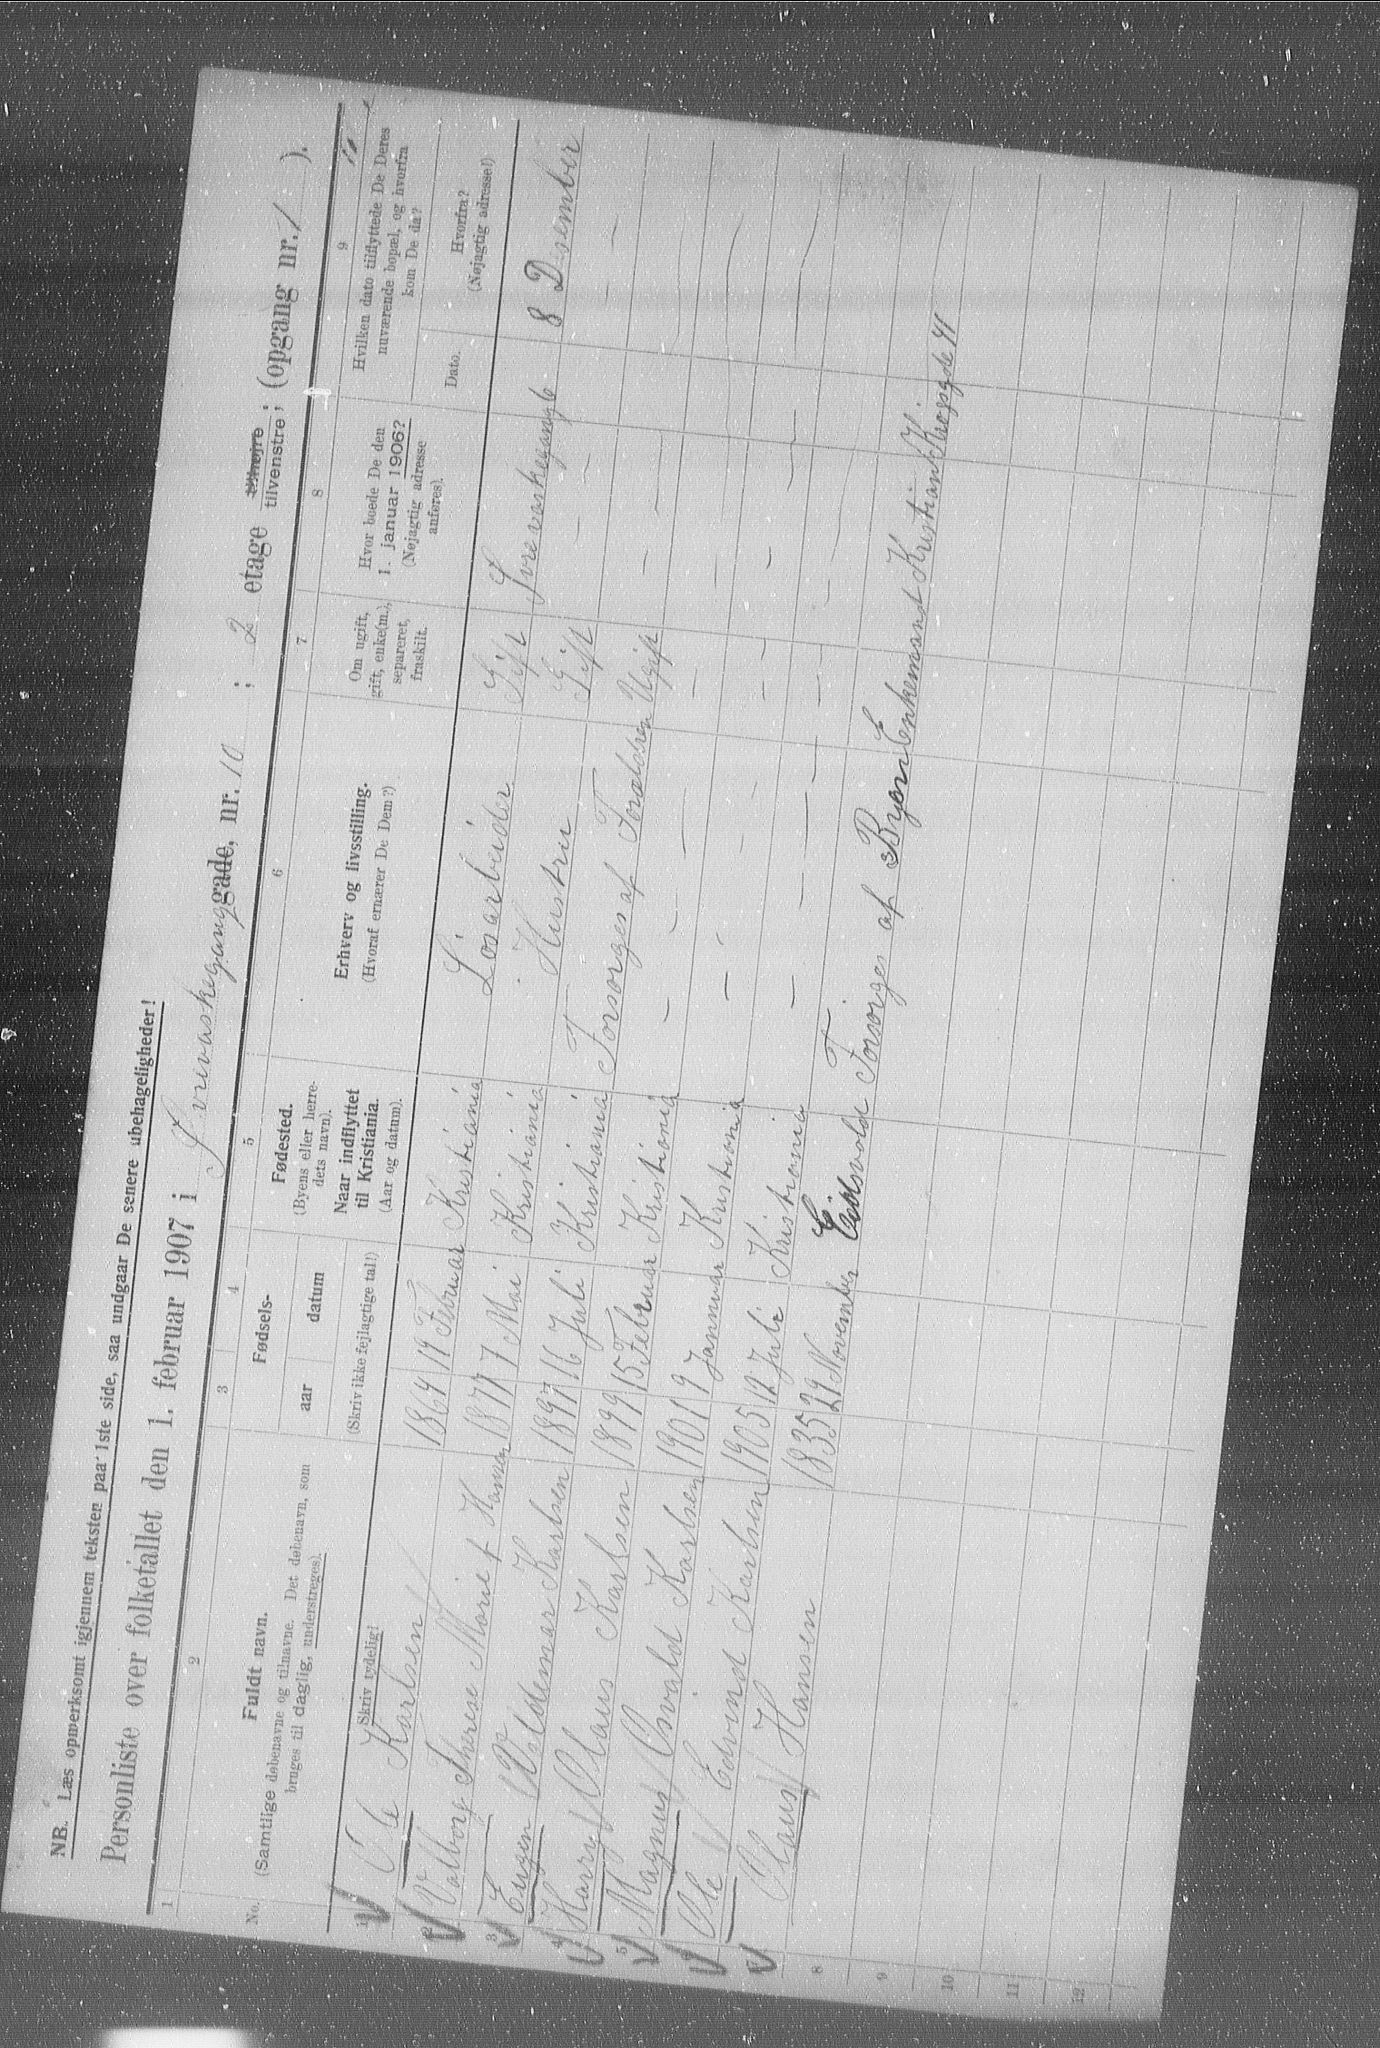 NB. Læs opmerksomt igjennem teksten paa 1ste side, saa undgaar De senere ubehageligheder!
Personliste over folketallet den 1. februar 1907 i Svrivaskegang gade, nr. 10 ; 2 etage tilhøjre tilvenstre, (opgang nr. / ).
1 2 3 4 5 6 7 8 9
No. Fuldt navn.
(Samtlige døbenavne og tilnavne. Det døbenavn, som
bruges til daglig, understreges).
Skriv tydelig!
Fødsels-
aar datum
(Skriv ikke fejlagtige tal!)
Fødested.
(Byens eller herre-
dets navn).
Naar indflyttet
til Kristiania.
(Aar og datum).
Erhverv og livsstilling.
(Hvoraf ernærer De Dem?)
Om ugift,
gift, enke(m.),
separeret,
fraskilt.
Hvor boede De den
1. januar 1906?
(Nøjagtig adresse
anføres).
Hvilken dato tilflyttede De Deres
nuværende bopæl, og hvorfra
kom De da?
Dato.
Hvorfra?
(Nøjagtig adresse!)
1 Ole Karlsen 1864 19 Februar Kristiania Løsarbeider Gift 8 Desember
2 Valborg Therese Marie f Hansen 1877 7 Mai Kristiania Hustru Gift — —
3 Eugen Valdemar Karlsen 1897 16 Juli Kristiania Forsørges af Foraldren Ugift — —
4 Harry Olaus Karlsen 1899 15 Februar Kristiania — — — — —
5 Magnus Osvald Karlsen 1901 9 Januar Kristiania — — — — —
6 Ole Edvind Karlsen 1905 12 Juli Kristiania — — — — —
7 Olaus Hansen 1835 29 November Eidsvold Forsørges af Byen Enkemand Kristian Krogsgde 41
8
9
10
11
12